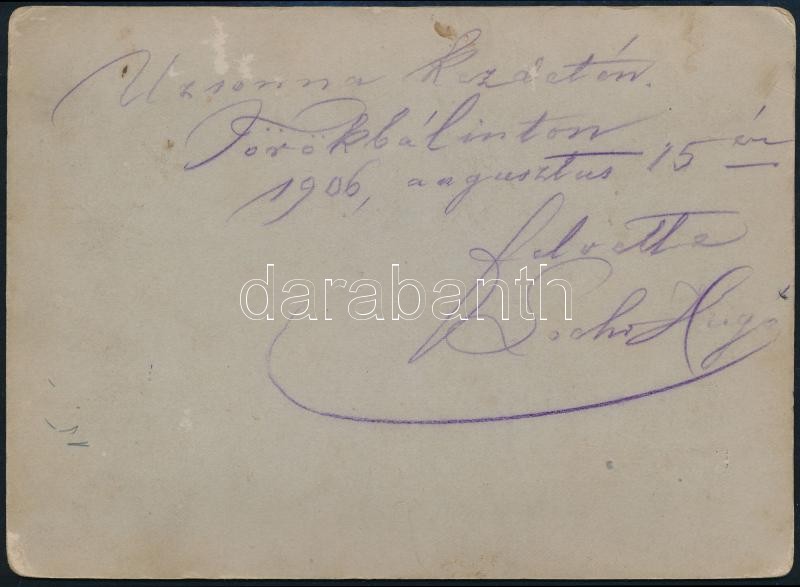 Uzsonna kezdetén.
Törökbálinton
1906, augusztus 15 én
felvette
Hugó
darabanth